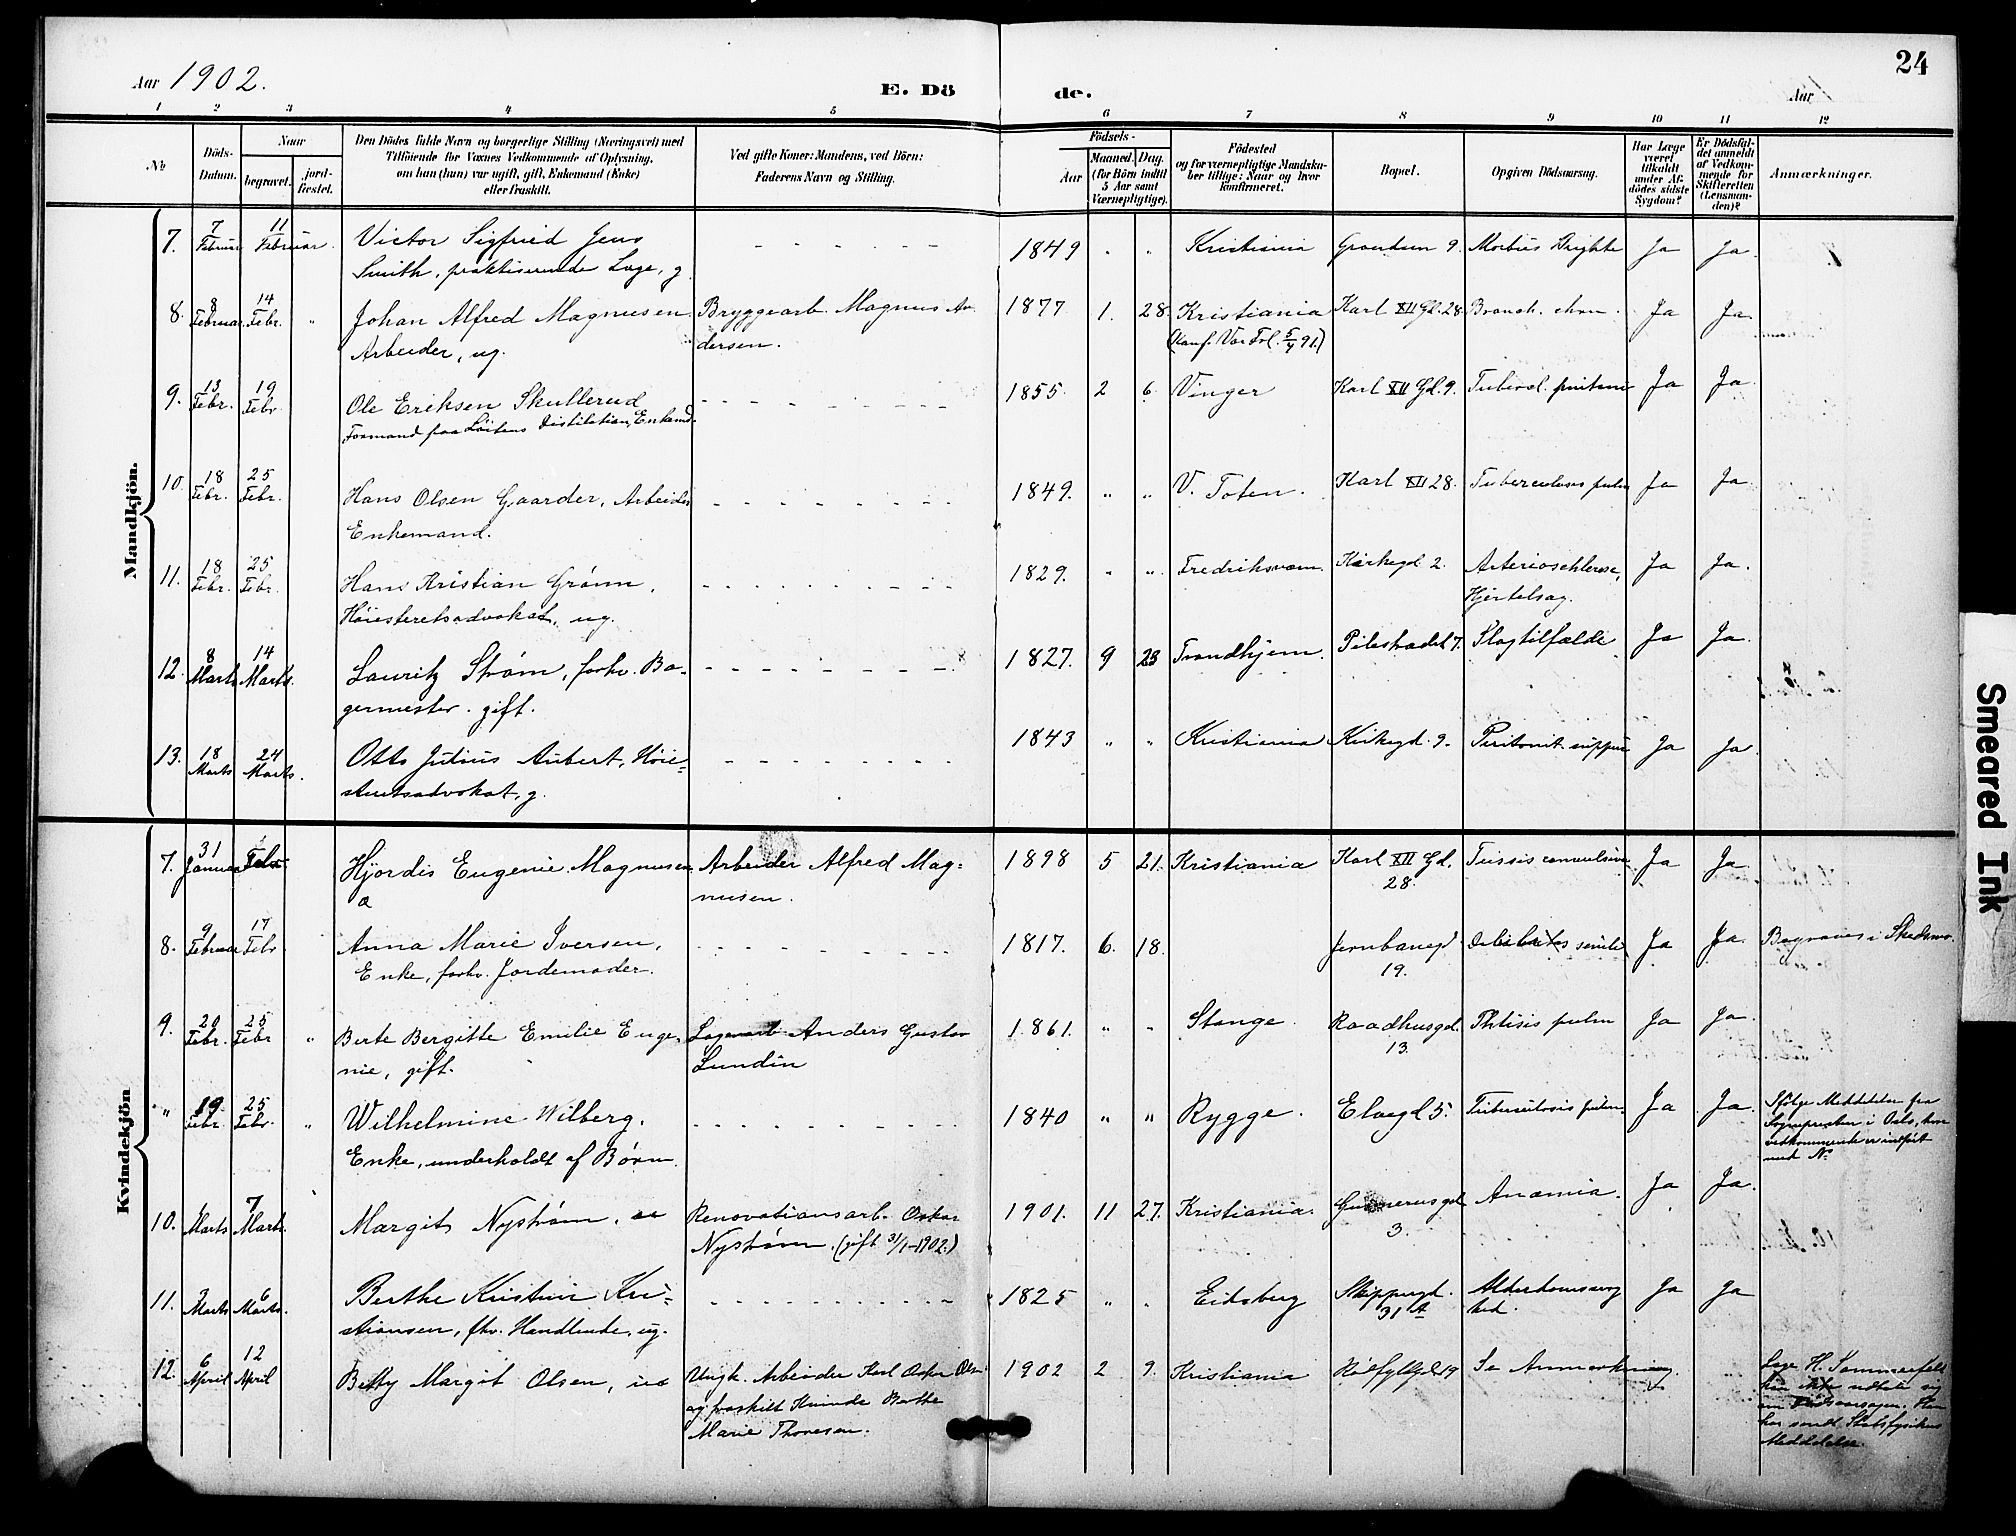 24
Aar 1902.
E. Dö de.
Aar
1 2 3 4 5 6 7 8 9 10 11 12
No
Döds-Datum.
Naar
begravet.
jord-fæstet.
Den Dödes fulde Navn og borgerlige Stilling (Næringsvei) med
Tilföiende for Voxnes Vedkommende af Oplysning,
om han (hun) var ugift, gift, Enkemand (Enke)
eller fraskilt.
Ved gifte Koner: Mandens, ved Börn:
Faderens Navn og Stilling.
Födsels-
Aar
Maaned. Dag.
(for Börn indtil
5 Aar samt
Værnepligtige).
Födested
og for værnepligtige Mandsku-
ber tillige: Naar og hvor
konfirmeret.
Bopæl.
Opgiven Dödsaarsag.
Har Læge
været
tilkaldt
under Af-
dödes sidste
Sygdom?
Er Dödsfal-
det anmeldt
af Vedkom-
mende for
Skifteretten
(Lensman-
den)?
Anmærkninger.
Mandkjön.
7. 7 Februar 11 Februar Victor Sigfried Jens 1849 " " Kristiania 9. Morbus Brightii Ja Ja.
Smith, praktiserende Læge, g.
8. 8 Februar 14 Febr. " Johan Alfred Magnusen Bryggearb. Magnus An- 1877 1. 28. Kristiania Karl XII Gd. 28 Bronch. chron. Ja Ja.
Arbeider, ug. dersen. (Konf. Vor Frl. 5/4 91.)
9. 13 Febr. 19 Febr. Ole Eriksen Skullerud 1855. 2 6. Vinger Karl XII Gd. 9. Tubercul. Ja Ja.
Formand paa Löitens Distilation, Enkemd.
10. 18 Febr. 25 Febr. Hans Olsen Gaarder, Arbeider 1849. " " V. Toten. Karl XII 28. Tuberculosis pulm Ja Ja.
Enkemand.
11. 18 Febr. 25 Febr. Hans Kristian Grønn, 1829. " " Fredriksværn. Kirkegd 2. Arterioschlerose, Ja Ja.
Høiesteretsadvokat, ug. Hjertelag.
12. 8 Marts 14 Marts. Lauritz Strøm, forhv. Ba- 1827. 9 23 Trondhjem. Pilestrædet 7. Slagtilfælde Ja Ja.
germester. gift.
13. 18 Marts 24 Marts. Otto Julius Aubert, Høie- 1843 " " Kristiania Kirkegd. 9. Peritonit. suppur Ja Ja.
steretsadvokat, g.
Kvindekjön
7. 31 Januar Febr Hjørdis Eugenie Magnusen Arbeider Alfred Mag- 1898 5 21. Kristiania Karl XII Gd. Tussis convulsiva Ja Ja.
æ nusen. 28.
8. 9 Februar 17 Febr Anna Marie Iversen, 1817. 6. 18. Jernbanegd Debilitas senilis Ja Ja. Begraves i Skedsmo.
Enke, forhv. Jordemoder. 19.
9. 20 Febr. 25 Febr " Berte Bergitte Emilie Euge- Lagerarb Anders Gustav 1861. " " Stange. Raadhusgd. Phtisis pulm Ja Ja.
nie, gift. Lundin 13.
" 19 Febr. 25 Febr. " Wilhelmine Wilberg, 1840 " " Rygge. Elvegd 5. Tuberculosis pulm. Ja Ja. Ifølge Meddelelse fra
Enke, underholdt af Børn. Sognepresten i Oslo, hvor
vedkommende er indført
med No
10. Marts 7 Marts. Margit Nystrøm, æ Renovationsarb. Oskar 1901. 11 27. Kristiania. Gunnerusgd Anæmia. Ja Ja.
Nystrøm. (gift 31/1-1902.) 3.
11. 3 Marts 6 Marts. Berthe Kristine Kri- 1825 " " Eidsberg Skippergd. Alderdomssvag Ja Ja
stiansen, fhv. Handlende, ug. 31 A hed.
12. 6 April 12 April Betty Margit Olsen, uæ Ungk. Arbeider Karl Oskar Olsen 1902 2 9. Kristiania 19 Se Anmærkning. Læge H. Sommerfeldt
og fraskilt Kvinde Berthe kan ikke udtale sig
Marie Thoresen. om Dødsaarsagen. Han
har sendt Stadsfysikus
Meddelelse.
Smeared Ink